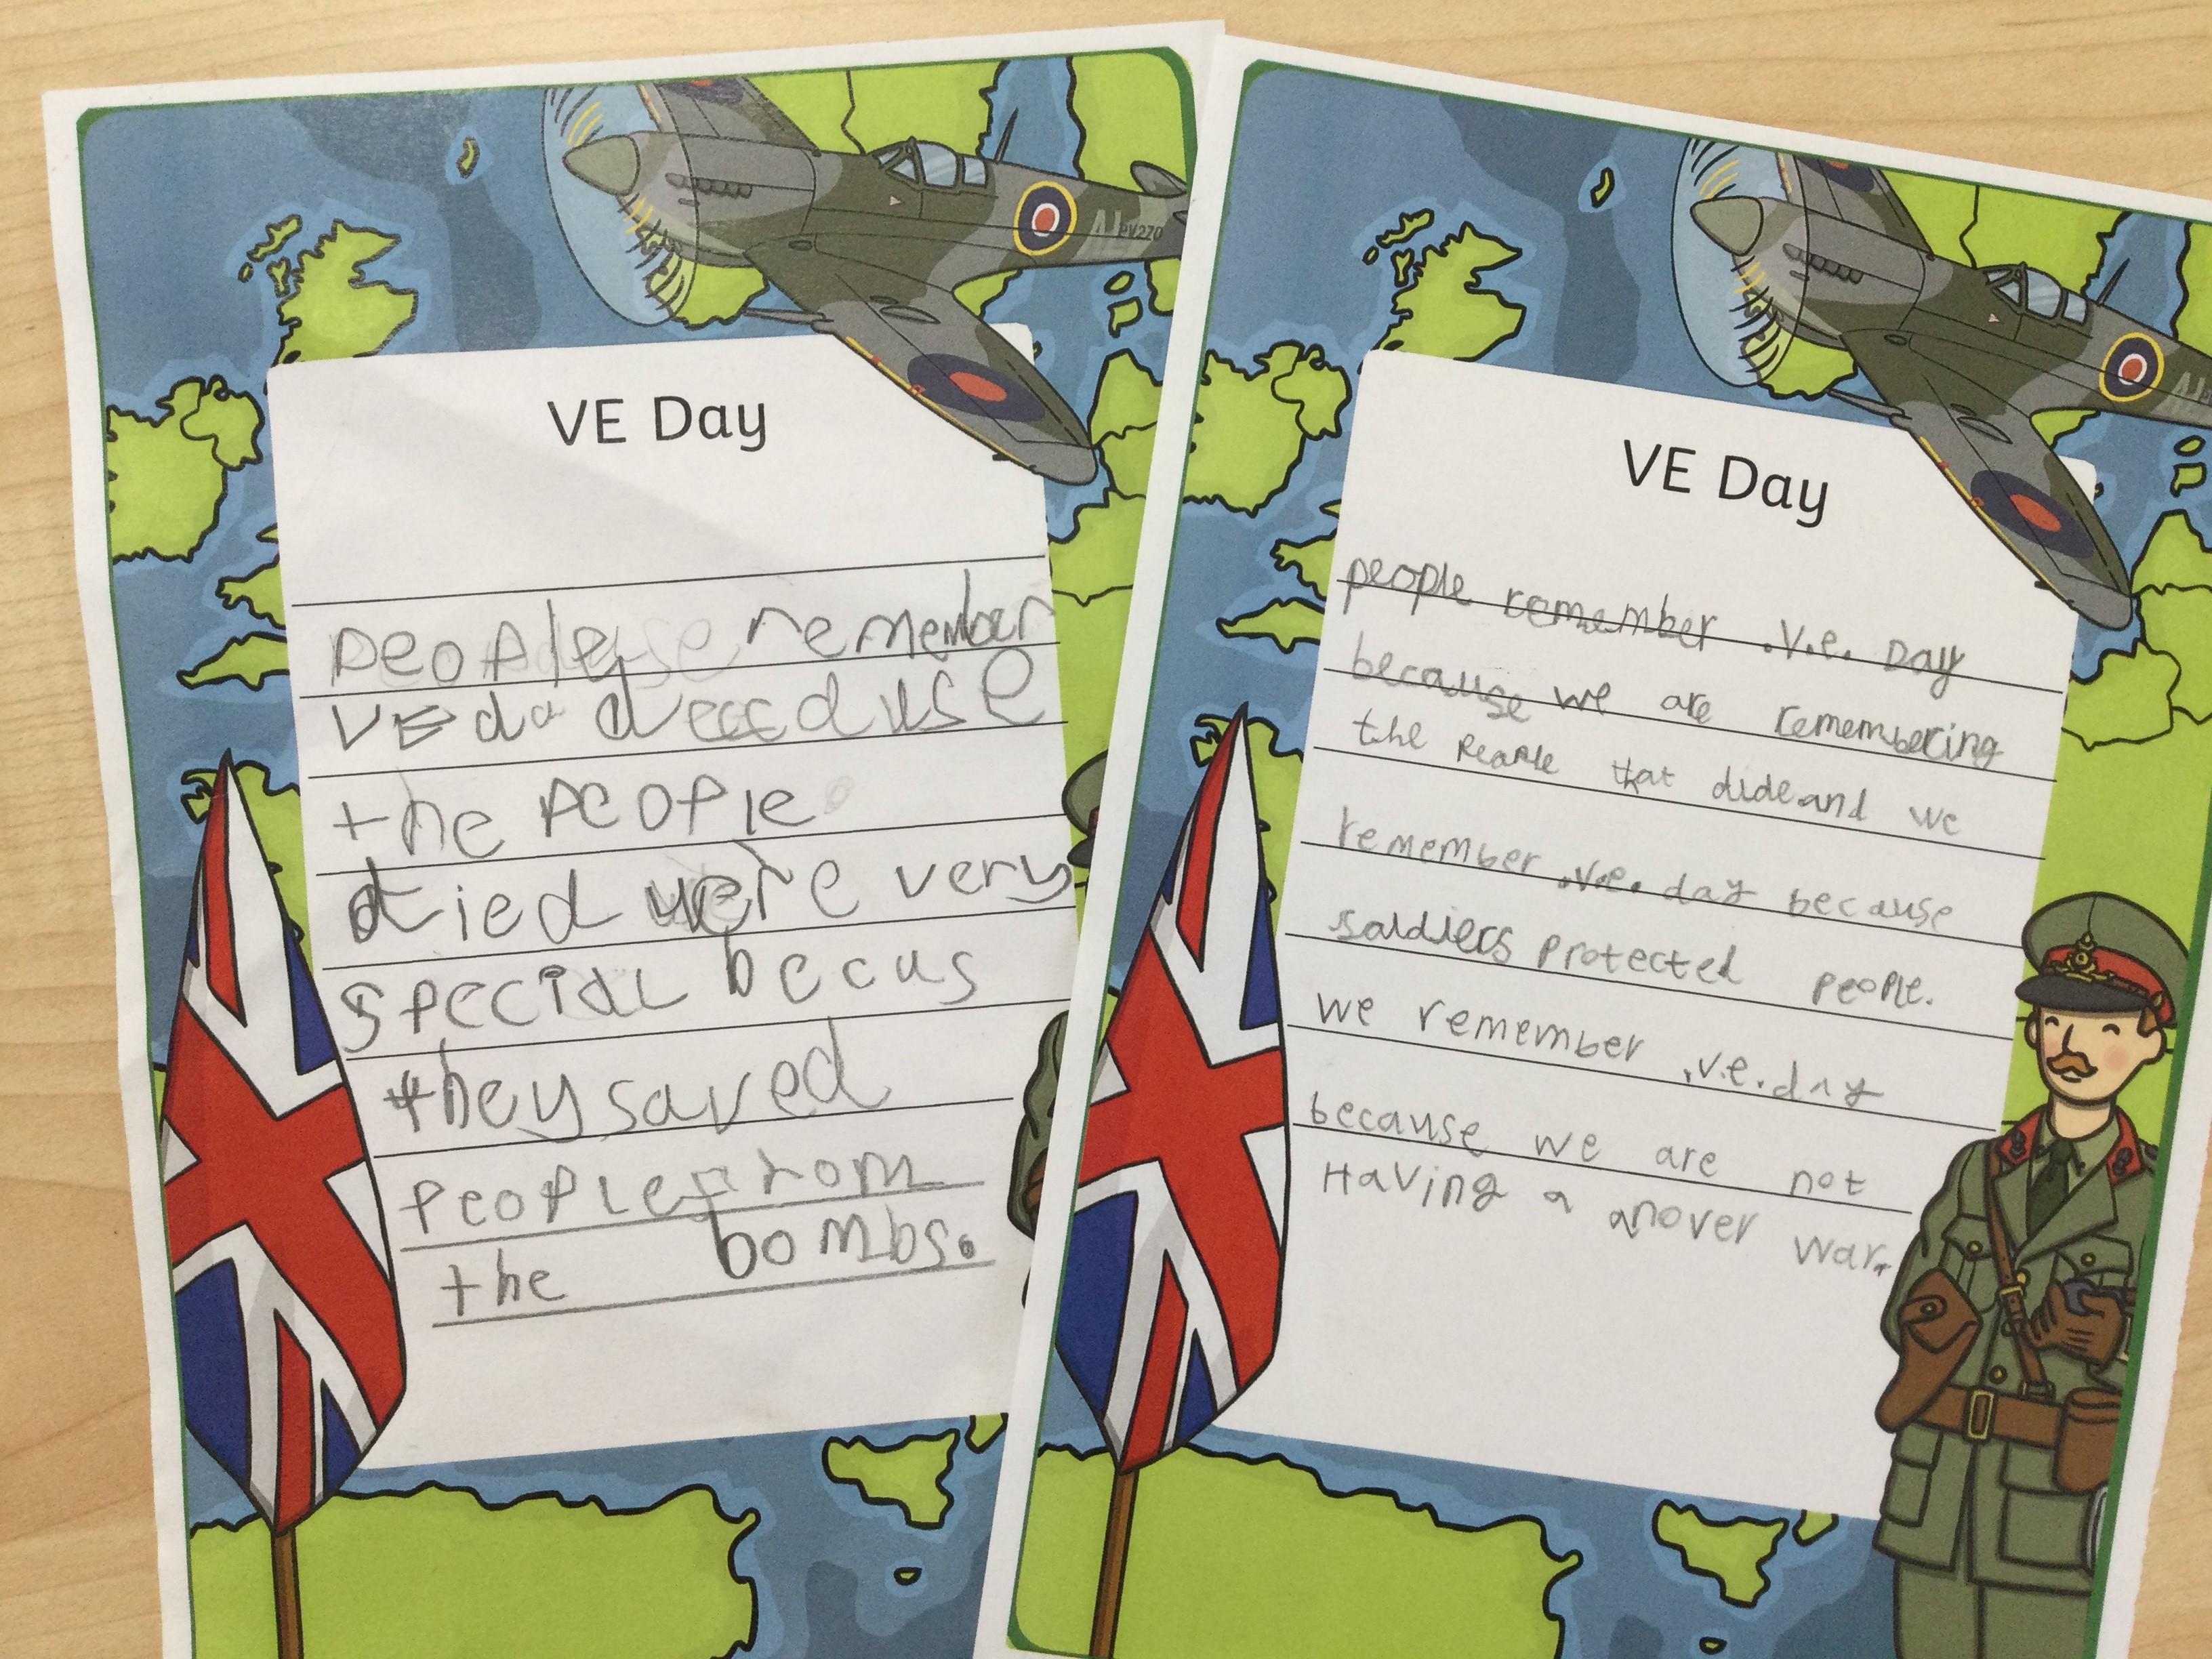 VE Day
people remember
VE da
the people
died were very
special becus
they saved
people from
the bombs.
VE Day
people remember .V.e. Day
because we are remembering
the people that dide and we
remember .v.e. day because
soldiers protected people.
we remember .v.e. day
because we are not
Having a anover war.